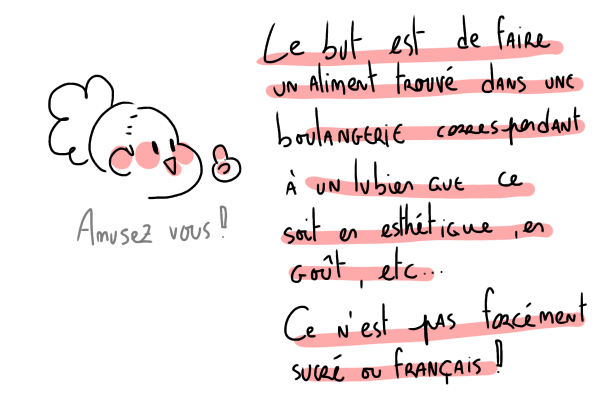 Le but est de faire
un aliment trouvé dans une
boulangerie correspondant
à un lubien que ce
soit en esthétique, en
goût, etc...
Ce n'est pas forcément
sucré ou français !
Amusez vous !